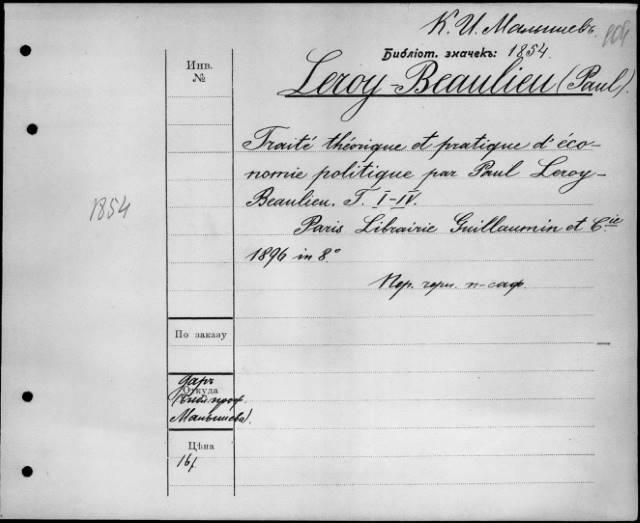 К. И. Малышевъ.
Библіот. значекъ: 1854.
Инв.
№
Leroy-Beaulieu (Paul).
Traité théorique et pratique d'éco-
nomie politique par Paul Leroy-
Beaulieu. T. I-IV.
1854
Paris Librairie Guillaumin et Cie
1896 in 8.°
Пер. черн. п-саф.
По заказу
Откуда
даръ
проф.
Малышева).
Цѣна
16 f.